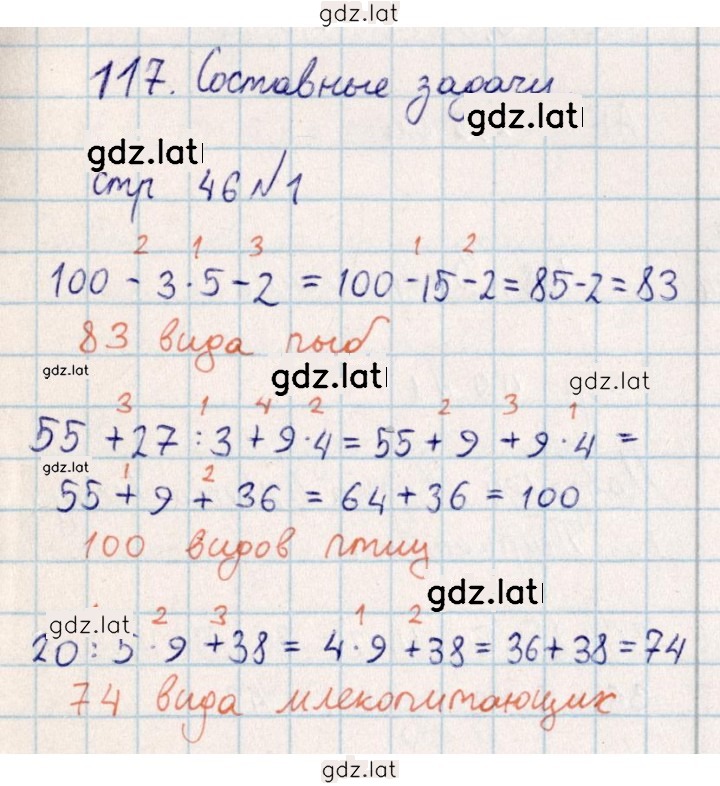 gdz.lat
117. Составные задачи
gdz.lat
gdz.lat
стр 46 №1
2 1 3 1 2
100 - 3 · 5 - 2 = 100 - 15 - 2 = 85 - 2 = 83
83 вида рыб
gdz.lat gdz.lat gdz.lat
3 1 4 2 2 3 1
55 + 27 : 3 + 9 · 4 = 55 + 9 + 9 · 4 =
gdz.lat 1 2
55 + 9 + 36 = 64 + 36 = 100
100 видов птиц
gdz.lat
gdz.lat 2 3 1 2
20 : 5 · 9 + 38 = 4 · 9 + 38 = 36 + 38 = 74
74 вида млекопитающих
gdz.lat